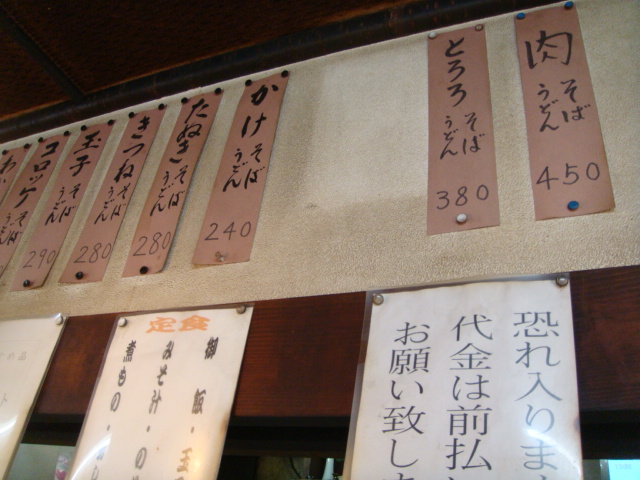 肉 そば うどん 450
とろろ そば うどん 380
かけ そば うどん 240
たぬき そば うどん 280
きつね そば うどん 280
玉子 そば うどん 280
コロッケ そば うどん 290
恐れ入りま
代金は前払
お願い致しま
定食
御飯・玉
みそ汁・の
煮もの・